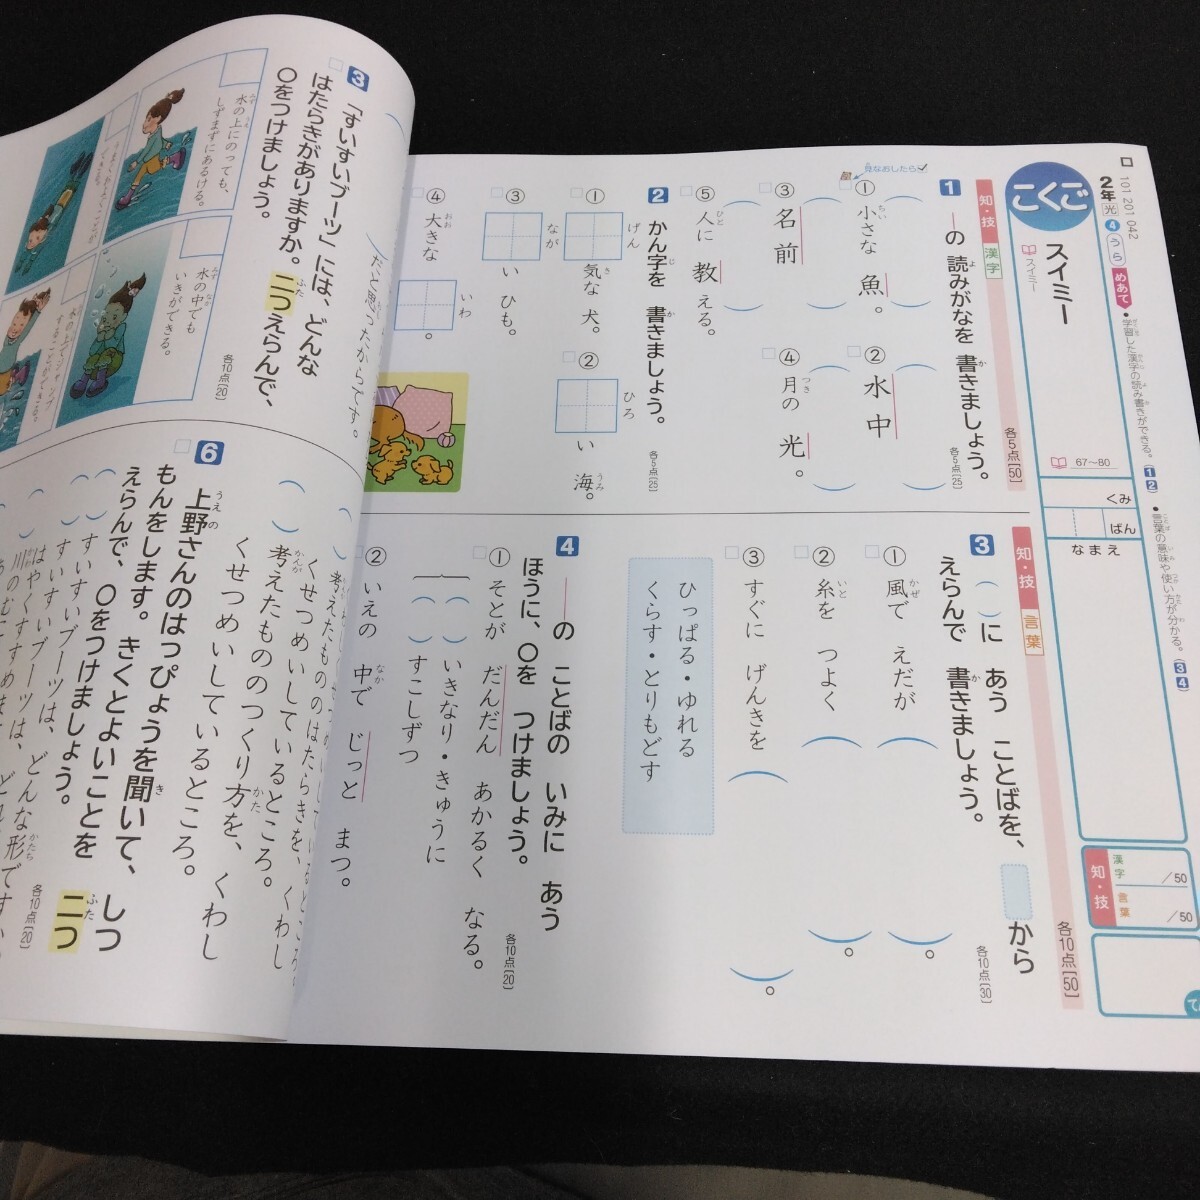 101 201 042
2年 光 4 うら
めあて
●学習した漢字の読み書きができる。(1 2)
●言葉の意味や使い方が分かる。(3 4)
こくご
スイミー
スイミー
67〜80
くみ
ばん
なまえ
知・技
漢字 /50
言葉 /50
知・技 漢字
各5点[50]
見なおしたら
1 ―の 読みがなを 書きましょう。
各5点[25]
① 小さな 魚。
② 水中
③ 名前
④ 月の 光。
⑤ 人に 教える。
2 かん字を 書きましょう。
各5点[25]
① げん 気な 犬。
② ひろ い 海。
③ なが い ひも。
④ 大きな いわ 。
知・技 言葉
各10点[50]
3 ( )に あう ことばを、 から
えらんで 書きましょう。
各10点[30]
① 風で えだが ( )。
② 糸を つよく ( )。
③ すぐに げんきを ( )。
ひっぱる・ゆれる
くらす・とりもどす
4 ―の ことばの いみに あう
ほうに、○を つけましょう。
各10点[20]
① そとが だんだん あかるく なる。
( ) いきなり・きゅうに
( ) すこしずつ
② いえの 中で じっと まつ。
だと思ったからです。
3 「すいすいブーツ」には、どんな
はたらきがありますか。二つえらんで、
○をつけましょう。
各10点[20]
水の上にのっても、
しずまずにあるける。
水の中でも
いきができる。
うまくおよぐことが
できる。
水の上でジャンプ
することができる。
考えたもののはたらきを、くわし
くせつめいしているところ。
考えたもののつくり方を、くわし
くせつめいしているところ。
6 上野さんのはっぴょうを聞いて、しつ
もんをします。きくとよいことを 二つ
えらんで、○をつけましょう。
各10点[20]
( ) すいすいブーツは、どんな形ですか
( ) すいすいブーツは、どれ
はやくすすめま
川のむこ